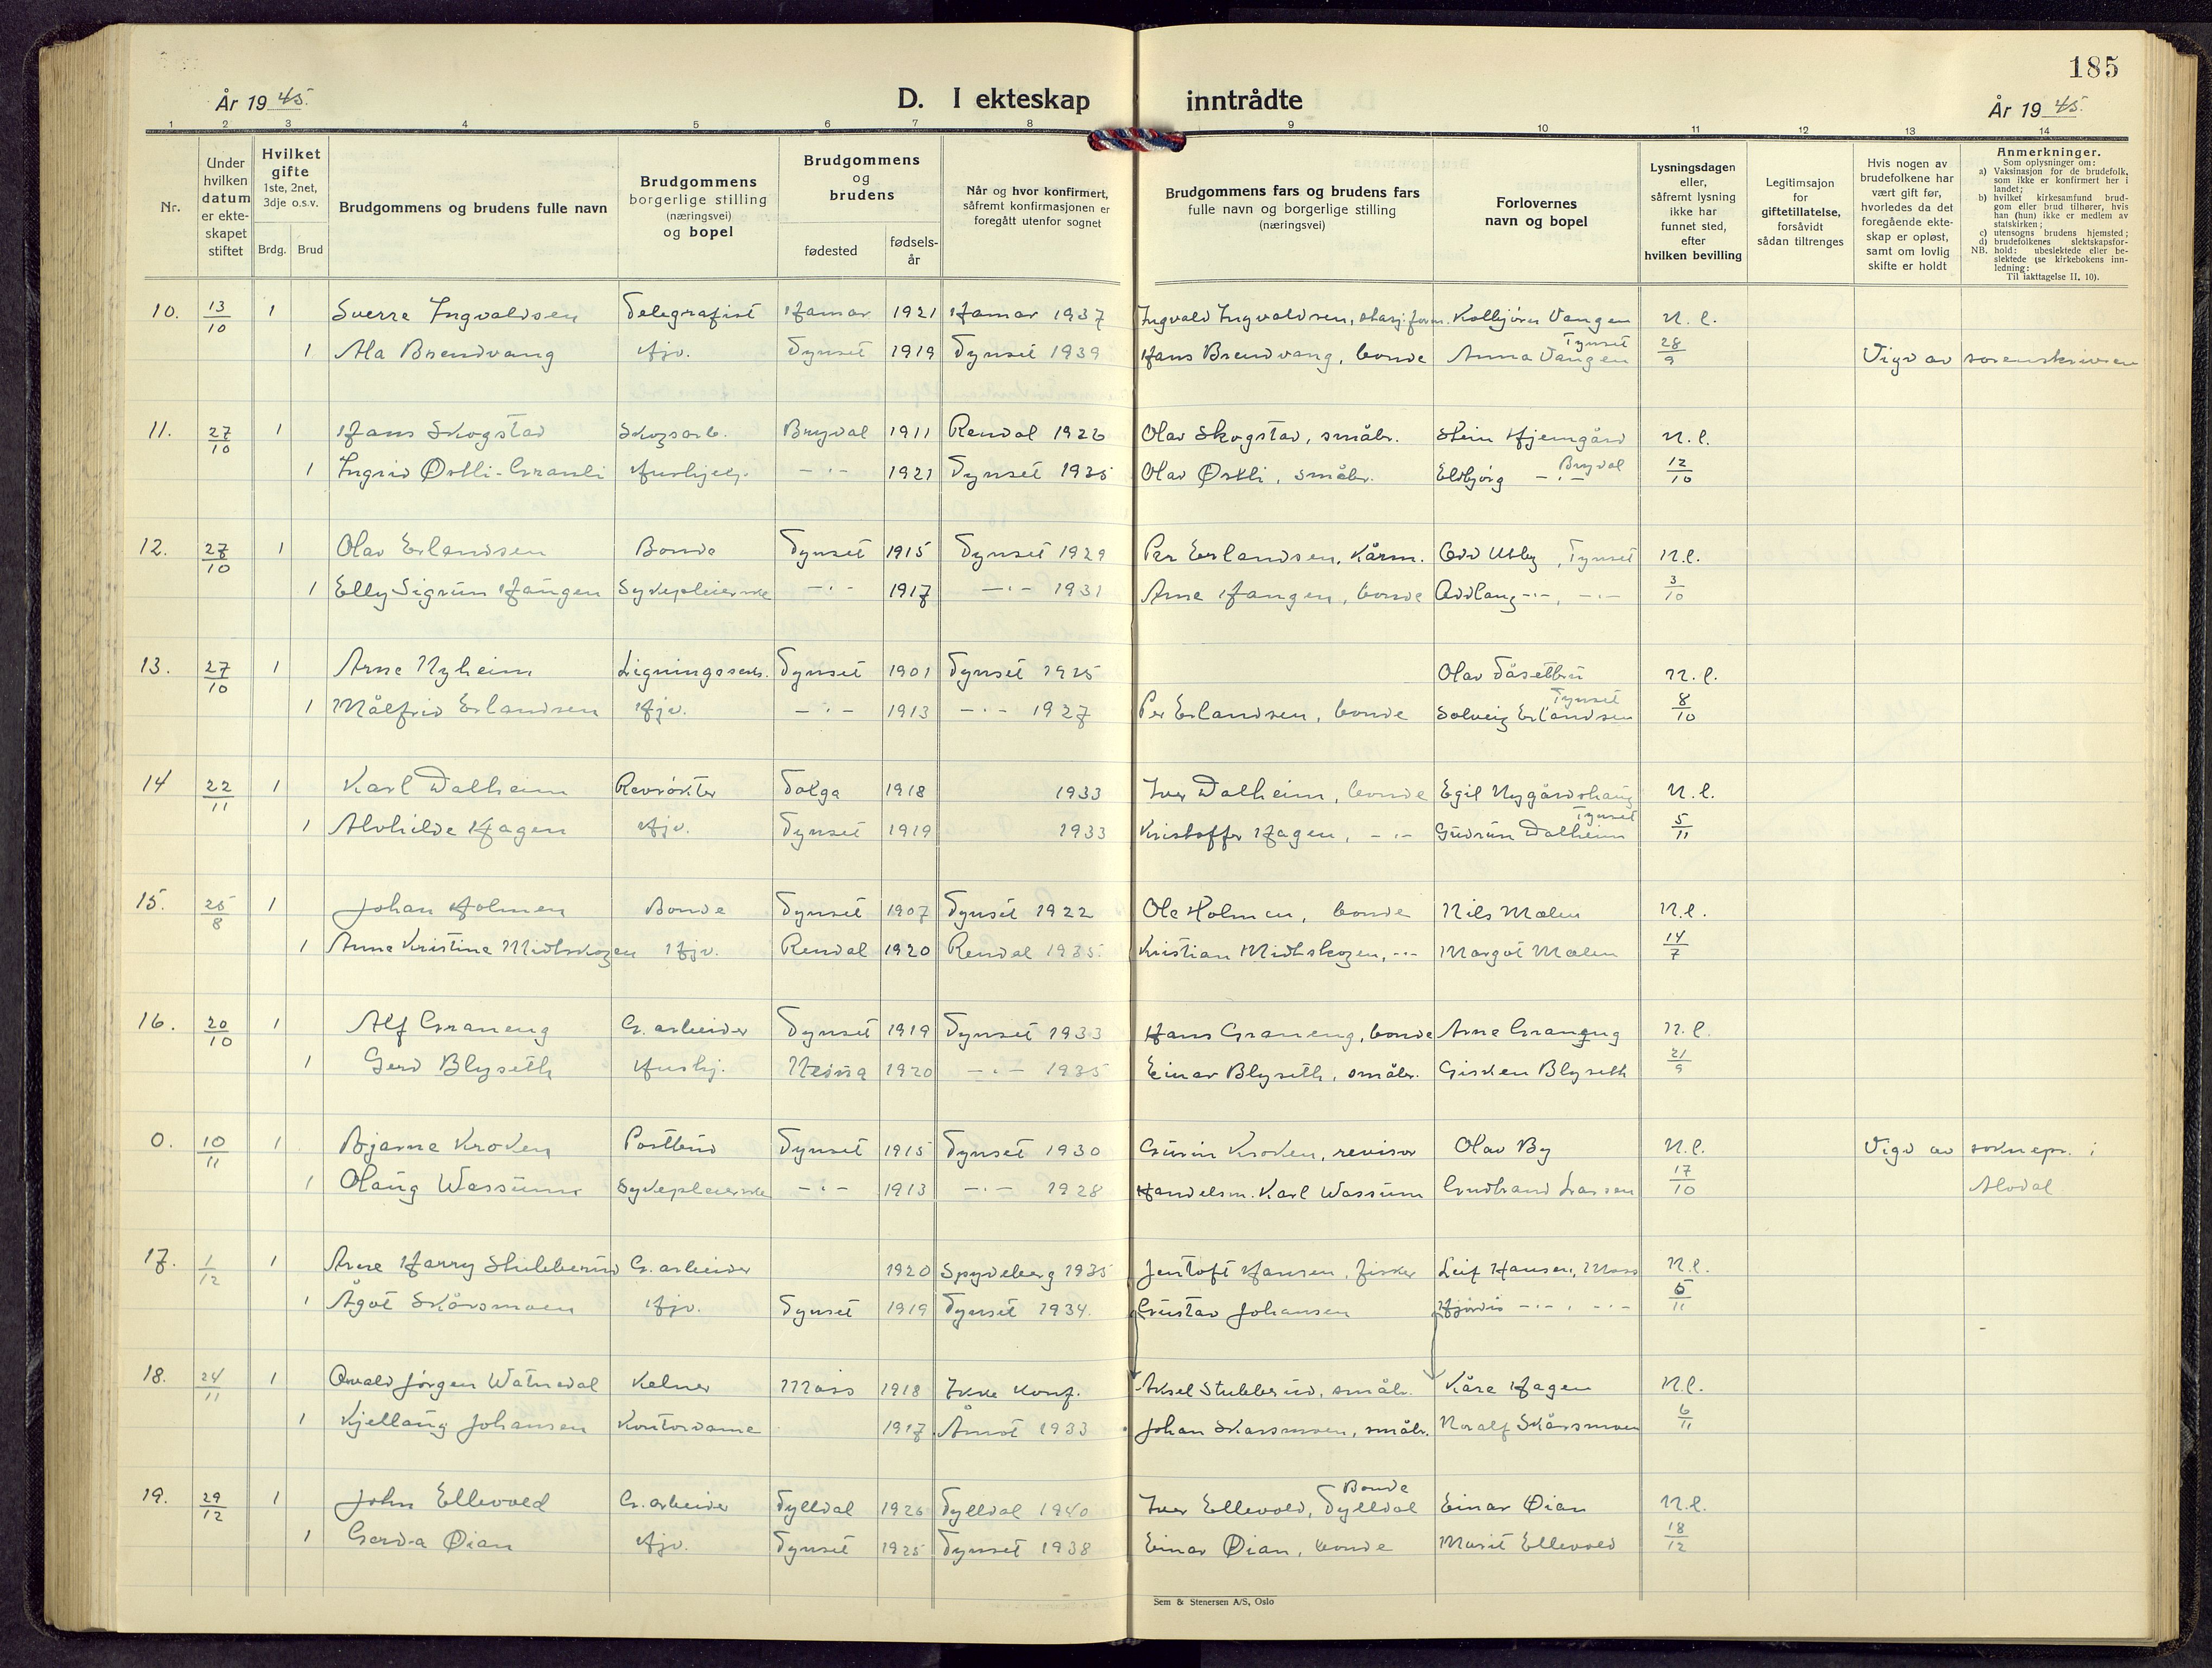 185
År 1945. D. I ekteskap inntrådte År 1945.
1 2 3 4 5 6 7 8 9 10 11 12 13 14
Nr.
Under hvilken datum er ekteskapet stiftet
Hvilket gifte 1ste, 2net, 3dje o.s.v.
Brdg. Brud
Brudgommens og brudens fulle navn
Brudgommens borgerlige stilling (næringsvei) og bopel
Brudgommens og brudens
fødested fødselsår
Når og hvor konfirmert, såfremt konfirmasjonen er foregått utenfor sognet
Brudgommens fars og brudens fars fulle navn og borgerlige stilling (næringsvei)
Forlovernes navn og bopel
Lysningsdagen eller, såfremt lysning ikke har funnet sted, efter hvilken bevilling
Legitimsajon for giftetillatelse, forsåvidt sådan tiltrenges
Hvis nogen av brudefolkene har vært gift før, hvorledes da det foregående ekteskap er opløst, samt om lovlig skifte er holdt
Anmerkninger.
Som oplysninger om:
a) Vaksinasjon for de brudefolk, som ikke er konfirmert her i landet;
b) hvilket kirkesamfund brudgom eller brud tilhører, hvis han (hun) ikke er medlem av statskirken;
c) utensogns brudens hjemsted;
d) brudefolkenes slektskapsforhold:
NB. ubeslektede eller beslektede (se kirkebokens innledning: Til iakttagelse II. 10).
10. 13/10 1 Sverre Ingvaldsen Telegrafist Hamar 1921 Hamar 1937 Ingvald Ingvaldsen, Kolbjörn Vangen N.l.
1 Ala Brendvang Hjv. Tynset 1919 Tynset 1939 Hans Brendvang, bonde Anna Vangen Tynset 28/9 Vigd av sorenskriveren
11. 27/10 1 Hans Skogstad Skogsarb. Brydal 1911 Rendal 1926 Olav Skogstad, småbr. Stein Hjemgård N.l.
1 Ingrid Østli-Granli Hushjelp -"- 1921 Tynset 1935 Olav Østli, småbr. Eldbjørg -"- Brydal 12/10
12. 27/10 1 Olav Erlandsen Bonde Tynset 1915 Tynset 1929 Per Erlandsen, Kårm. Odd Utby, Tynset N.l.
1 Elly Sigrun Haugen Sykepleierske -"- 1917 -"- 1931 Arne Haugen, bonde Oddlaug -"-, -"- 3/10
13. 27/10 1 Arne Nyheim Ligningssekr. Tynset 1901 Tynset 1915 Olav N.l.
1 Målfrid Erlandsen Hjv. -"- 1913 -"- 1927 Per Erlandsen, bonde Solveig Erlandsen Tynset 8/10
14 22/11 1 Karl Dalheim Revrökter Tolga 1918 1933 Iver Dalheim, bonde Egil Nygårdshaug N.l.
1 Alvhilde Hagen Hjv. Tynset 1919 1933 Kristoffer Hagen, -"- Gudrun Dalheim Tynset 5/11
15. 25/8 1 Johan Holmen Bonde Tynset 1907 Tynset 1922 Ole Holmen, bonde Nils Mælen N.l.
1 Anne Kristine Midtskogen Hjv. Rendal 1920 Rendal 1935. Kristian Midtskogen, -"- Margot Mælen 14/7
16. 20/10 1 Alf Graneng G. arbeider Tynset 1919 Tynset 1933 Hans Graneng, bonde Arne Graneng N.l.
1 Gerd Blyseth Hushj. 1920 -"- 1935 Einar Blyseth, småbr. Gisken Blyseth 21/9
0. 10/11 1 Bjarne Kroken Postbud Tynset 1915 Tynset 1930 Kroken, revisor Olav By N.l. Vigd av soknepr. i
1 Olaug Wassum Sykepleierske -"- 1913 -"- 1928 Handelsm. Karl Wassum Gudbrand Larsen 17/10 Alvdal
17. 1/12 1 Arne Harry Stubberud G. arbeider 1920 Spydeberg 1935 Jentoft Hansen, fisker Leif Hansen, Moss N.l.
1 Ågot Skårsmoen Hjv. Tynset 1919 Tynset 1934. Gustav Johansen Hjørdis -"-, -"- 5/11
18. 24/11 1 Osvald Jörgen Watnedal Kelner Moss 1918 Ikke konf. Aksel Stubberud, småbr. Kåre Hagen N.l.
1 Kjellaug Johansen Kontordame 1917 Åmot 1933 Johan Skarsmoen, småbr. Noralf Skårsmoen 6/11
19. 29/12 1 John Ellevold G. arbeider Tylldal 1926 Tylldal 1940 Iver Ellevold, Bonde Tylldal Einar Øian N.l.
1 Gerda Øian Hjv. Tynset 1925 Tynset 1938 Einar Øian, bonde Marit Ellevold 18/12
Sem & Stenersen A/S, Oslo